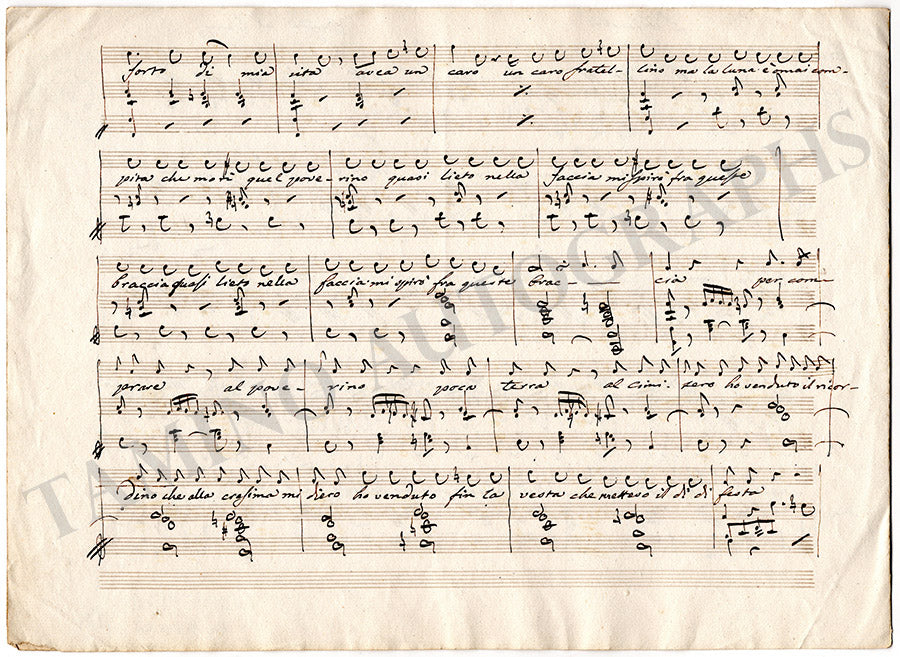 forto di mia vita avea un caro un caro fratel-lino ma la luna è omai com-
pita che morì quel pove-rino quasi lieto nella faccia mi spirò fra queste
braccia quasi lieto nella faccia mi spirò fra queste brac- - cia per com-
prare al pove-rino poca terra al cimi-tero ho venduto il ricor-
dino che alla cresima mi diero ho venduto fin la vesta che mettevo il dì di festa
TAMINO AUTOGRAPHS